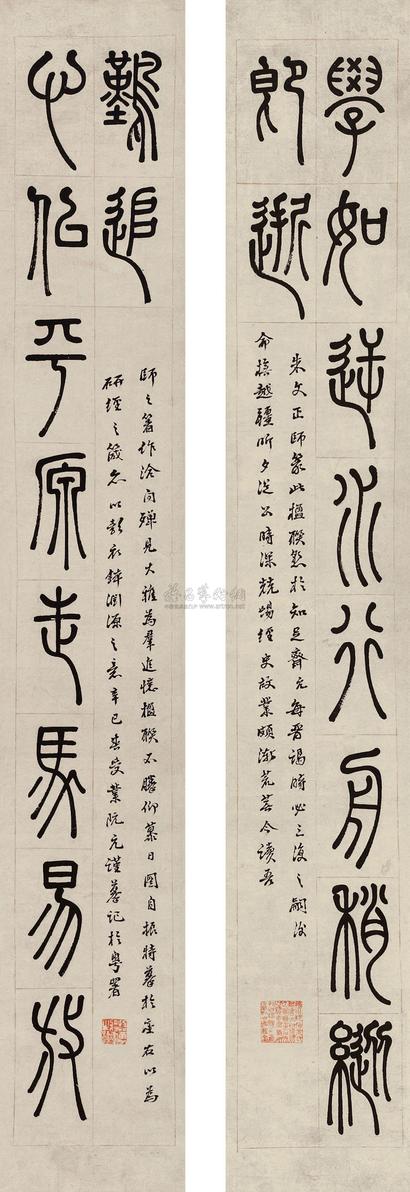 學如逆水行舟稍縱
即逝
朱文正師篆此楹聯懸於知足齋元每晉謁時必三復之嗣後
命越疆昕夕從公時深兢惕經史故業頗漸荒蕪今讀吾
心似平原走馬易放
難追
師之著作洽聞殫見大雅為群追憶楹聯不勝仰慕日圖自振特摹於座右以為
研經之箴亦以彰衣鉢淵源之意辛巳春受業阮元謹摹記於粵署